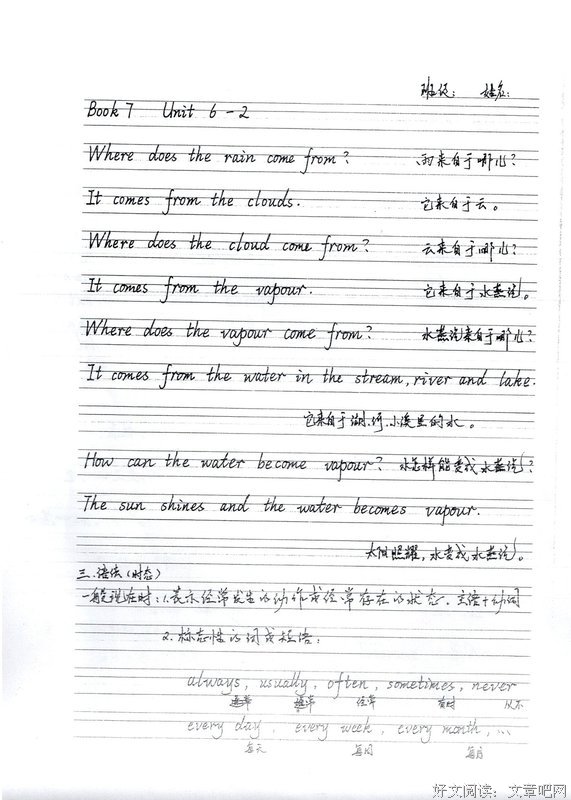 班级： 姓名：
Book 7 Unit 6-2
Where does the rain come from? 雨来自于哪儿？
It comes from the clouds. 它来自于云。
Where does the cloud come from? 云来自于哪儿？
It comes from the vapour. 它来自于水蒸汽。
Where does the vapour come from? 水蒸汽来自于哪儿？
It comes from the water in the stream, river and lake.
它来自于湖.河.小溪里的水。
How can the water become vapour? 水怎样能变成水蒸汽？
The sun shines and the water becomes vapour.
太阳照耀，水变成水蒸汽。
三.语法（时态）
一般现在时：1.表示经常发生的动作或经常存在的状态. 主语+动词
2.标志性的词或短语：
always, usually, often, sometimes, never
通常 经常 有时 从不
every day, every week, every month, ...
每天 每周 每月
好文阅读：文章吧网